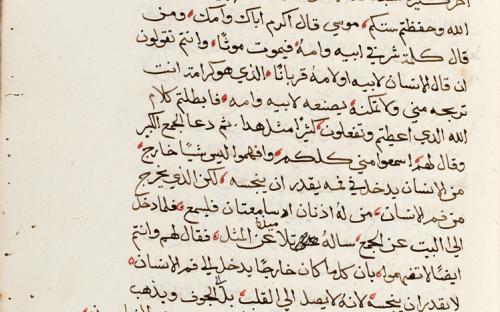 الله وحفظتم سنتكم، موسي قال اكرم اباك وامك، ومن
قال كلمة شر في ابيه وامه فيموت موتًا، وانتم تقولون
ان قال الانسان لابيه او لامه قربانًا، الذي هو كرامة انت
تربحه مني ولا تمكنه يصنعه لابيه وامه، فابطلتم كلام
الله الذي اعطيتم وتفعلون كثيرًا مثل هذا، ثم دعا الجمع اكبر
وقال لهم اسمعوا مني كلكم، وافهموا ليس شيًا خارج
من الانسان يدخل في فمه يقدر ان ينجسه، لكن الذي يخرج
من فم الانسان، من له اذنان سامعتان فليسمع، فلما دخل
الي البيت عن الجمع، ساله تلاميذه عن المثل، فقال لهم وانتم
ايضًا لا تفهموا، بان كلما كان خارجًا يدخل في فم الانسان،
لا يقدر ان ينجسه لانه لا يصل الي القلب، بل الي الجوف ويذهب